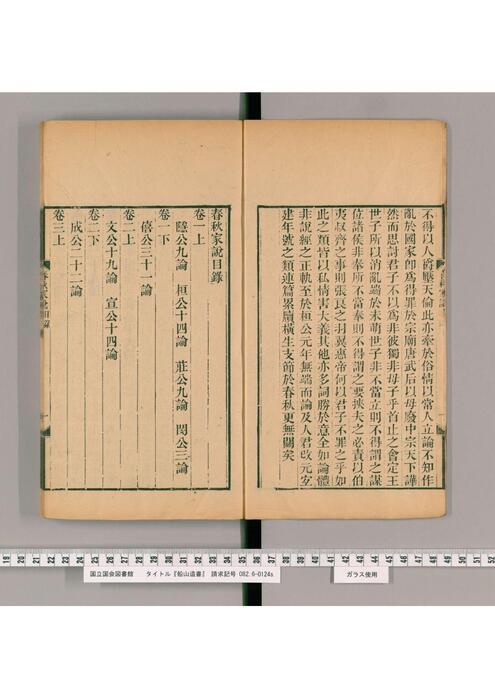 不得以人爵壓天倫此亦牽於俗情以常人立論不知作
亂於國家卽爲得罪於宗廟唐武后以母廢中宗天下譁
然而思討君子不以爲非彼獨非母子乎首止之會定王
世子所以消亂端於未萌世子非不當立則不得謂之謀
位諸侯非奉所不當奉則不得謂之要挾夫之必責以伯
夷叔齊之事則張良之羽翼惠帝何以君子不罪之乎如
此之類皆以私情害大義其他亦多詞勝於意全如論體
非說經之正軌至於桓公元年無端而論及人君改元宜
建年號之類連篇累牘橫生支節於春秋更無關矣
春秋家說目錄
卷一上
隱公九論 桓公十四論 莊公九論 閔公三論
卷一下
僖公三十一論
卷二上
文公十九論 宣公十四論
卷二下
成公二十二論
卷三上
春秋家說目錄
一
国立国会図書館 タイトル『船山遺書』 請求記号 082.6-0124s
ガラス使用
19 20 21 22 23 24 25 26 27 28 29 30 31 32 33 34 35 36 37 38 39 40 41 42 43 44 45 46 47 48 49 50 51 52